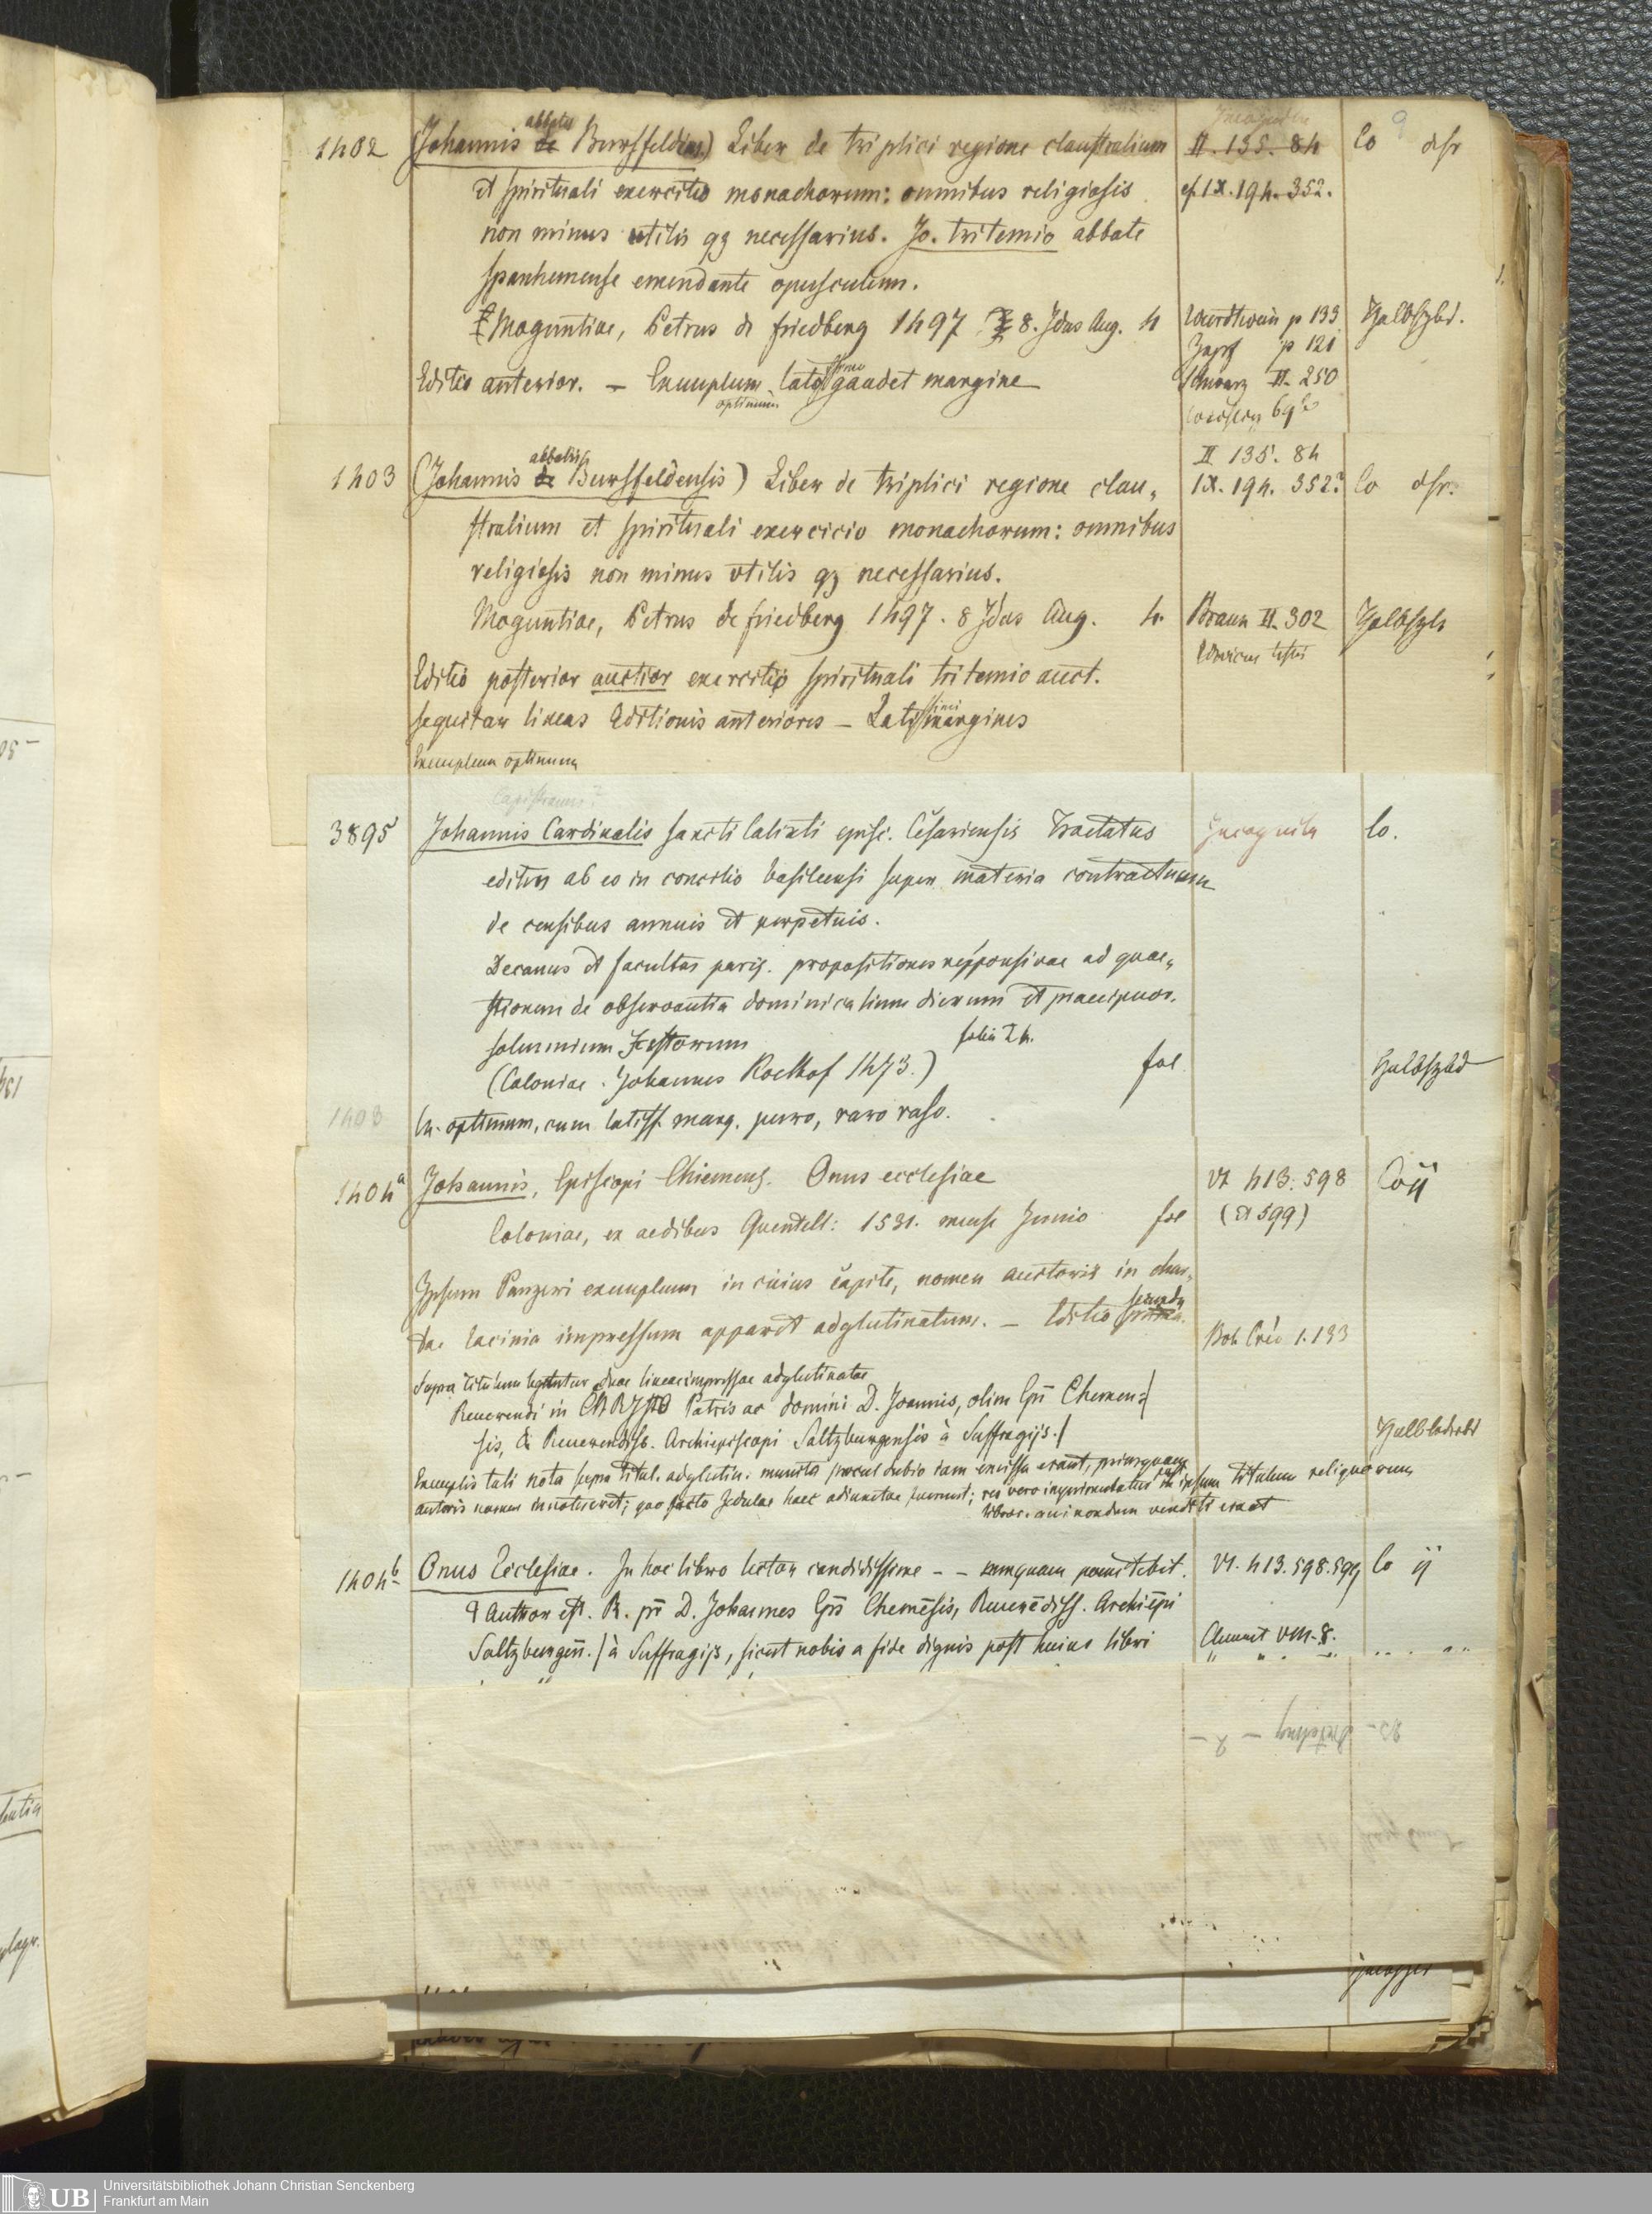 1402 (Johannis abbatis de Bursfeld) Liber de triplici regione claustralium II. 135. 84 Co dsr
et spirituali exercitio monachorum: omnibus religiosis cf. IX. 194. 352.
non minus utilis qz necessarius. Jo. tritemio abbate
spanhemense emendante opusculum.
Moguntiae, Petrus de friedberg 1497 8. Idus Aug. 4 Würdtwein p 133 Halbfzbd.
Zapf p 121
Editio anterior. – Exemplum optimum latissimo gaudet margine Schwarz II. 250
1403 (Johannis abbatis de Bursfeldensis) Liber de triplici regione clau- II 135. 84
IX. 194. 352? Co dsr.
stralium et spirituali exercicio monachorum: omnibus
religiosis non minus vtilis qz necessarius.
Moguntiae, Petrus de friedberg 1497. 8 Idus Aug. 4. Braun II. 302 Halbfzb
Editio posterior auctior exercitio spirituali tritemio auct.
sequitur lineas Editionis anterioris – Latissimi margines
Exemplum optimum
Capistranus?
3895 Johannis Cardinalis sancti Calixti episc. Cesariensis Tractatus Incognita Co.
editus ab eo in concilio basileensi super materia contractuum
de censibus annuis et perpetuis.
Decanus et facultas paris. propositiones responsivae ad quae-
stionem de observantia dominicalium dierum et praecipuor.
solemnium Festorum folia 24.
(Coloniae. Johannes Koelhof 1473.) fol Halbfzbd
1403 Ex. optimum, cum latiss. marg. puro, raro raso.
1404a Johannis, Episcopi Chiemens. Onus ecclesiae VI 413. 598 Co ij
Coloniae, ex aedibus Quentell: 1531. mense Junio fol (et 599)
Ipsum Panzeri exemplum in cuius capite, nomen auctoris in char-
tae lacinia impressum apparet adglutinatum. – Editio prima secunda
Supra titulum leguntur duae lineae impressae adglutinatae
Reuerendi in CHRISTO Patris ac domini D. Joannis, olim Epi Chemen=|
sis, & Reuerendiss. Archiepiscopi Saltzburgensis à Suffragijs.|
Exemplis tali nota supra titul. adglutin. munita procul dubio iam emissa erant, priusquam
autoris nomen innotuerit; quo facto schedulae haec adiunctae fuerunt; in ipsum titulum reliquorum
qui nondum venditi erant
1404b Onus Ecclesiae. In hoc libro lector candidissime – – numquam poenitebit. VI. 413. 598. 599 Co ij
Author est. R. pr D. Johannes Eps Chemēsis, Reuerēdiss. Archiēpi
Saltzburgen. | à Suffragijs, sicut nobis a fide dignis post huius libri Clement VIII. 8.
Universitätsbibliothek Johann Christian Senckenberg
Frankfurt am Main
UB